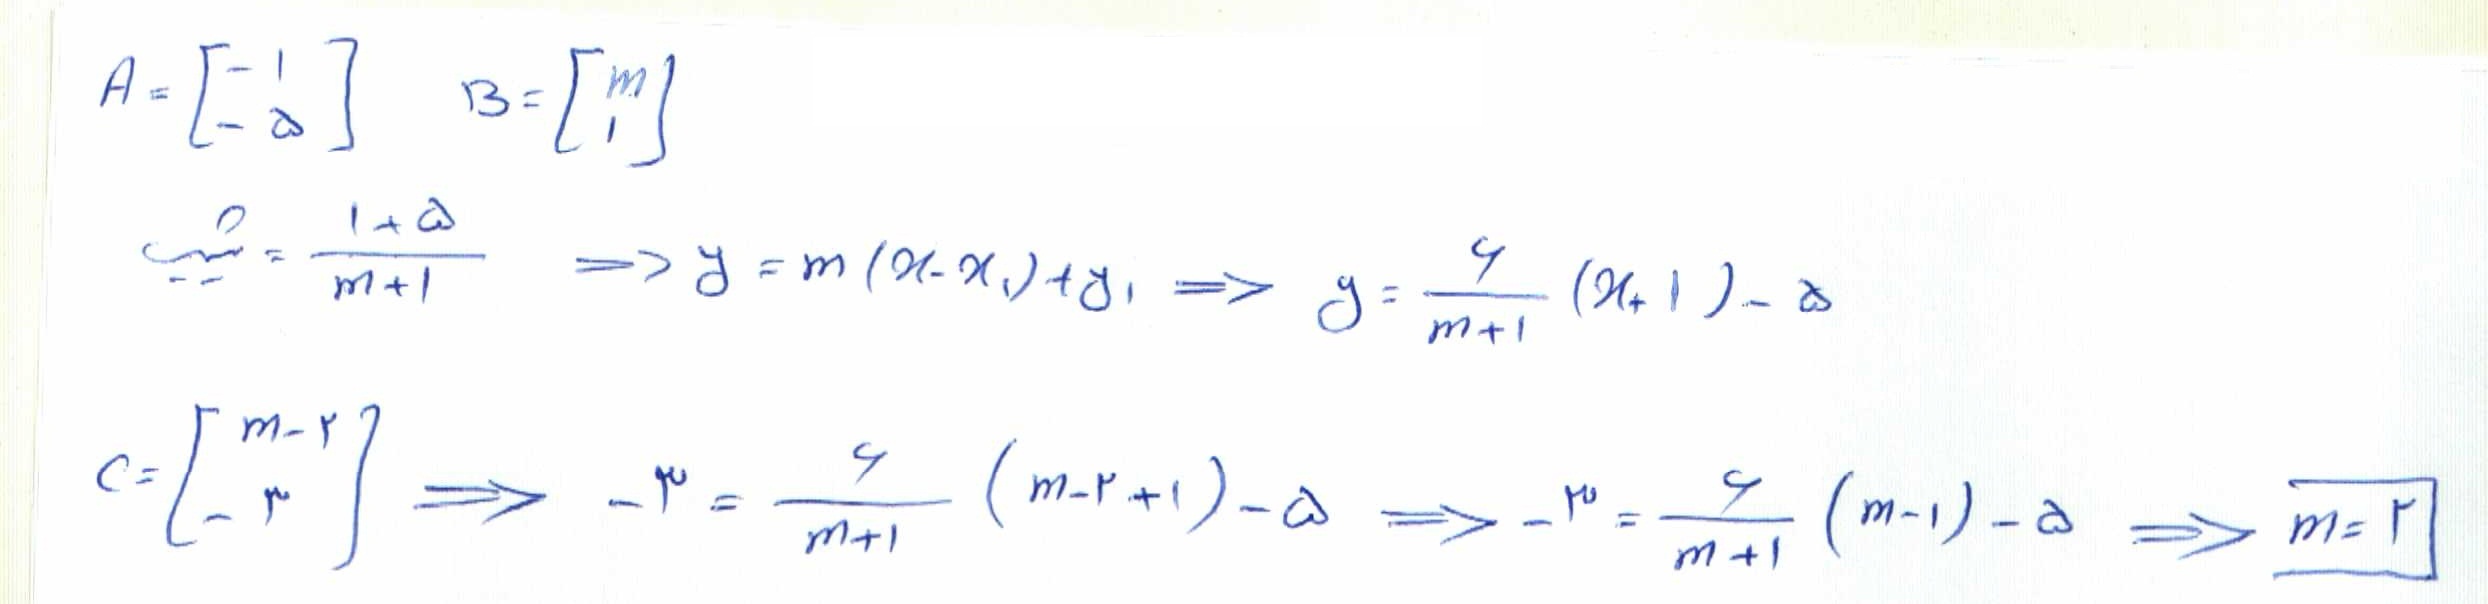 A = [-۱ -۵] B = [m ۱]
شیب = (۱+۵)/(m+۱) => y = m(x-x₁)+y₁ => y = ۶/(m+۱) (x+۱) - ۵
C = [m-۲ -۳] => -۳ = ۶/(m+۱) (m-۲+۱) - ۵ => -۳ = ۶/(m+۱) (m-۱) - ۵ => m = ۲